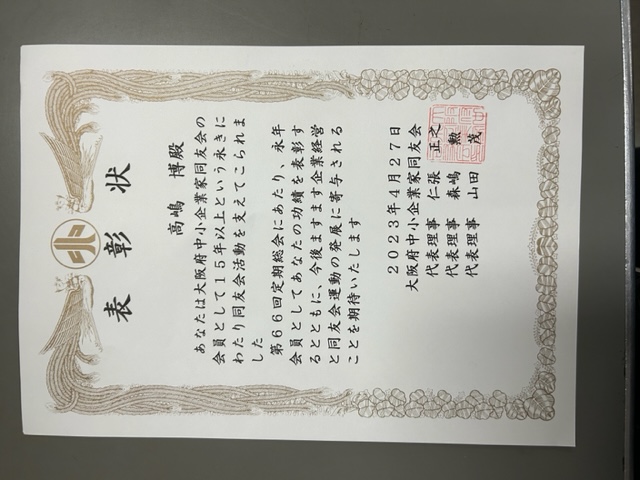 表彰状
高嶋 博殿
あなたは大阪府中小企業家同友会の
会員として15年以上という永きに
わたり同友会活動を支えてこられま
した
第66回定期総会にあたり、永年
会員としてあなたの功績を表彰す
るとともに、今後ますます企業経営
と同友会運動の発展に寄与される
ことを期待いたします
2023年4月27日
大阪府中小企業家同友会
代表理事 仁張 正之
代表理事 森嶋 勲
代表理事 山田 茂